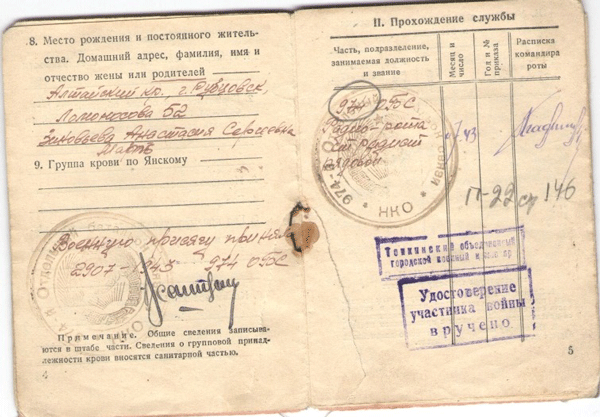 8. Место рождения и постоянного житель-
ства. Домашний адрес, фамилия, имя и
отчество жены или родителей
Алтайский кр. г. Рубцовск,
Ломоносова 52
Зиновьева Анастасия
мать
9. Группа крови по Янскому
Военную присягу принял
2907-1943 974 ОБС
Примечание. Общие сведения записыва-
ются в штабе части. Сведения о групповой принад-
лежности крови вносятся санитарной частью.
II. Прохождение службы
Часть, подразделение,
занимаемая должность
и звание
Месяц и
число
Год и №
приказа
Расписка
командира
роты
974 ОБС
Радио-рота
радист
рядовой
43
974-й
НКО
П-22 стр 146
городской военный
Удостоверение
участника войны
вручено
5